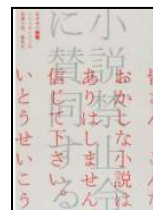 小説禁止令
に賛同する
おかしな小説は
ありはしません
信じて下さい。
いとうせいこう